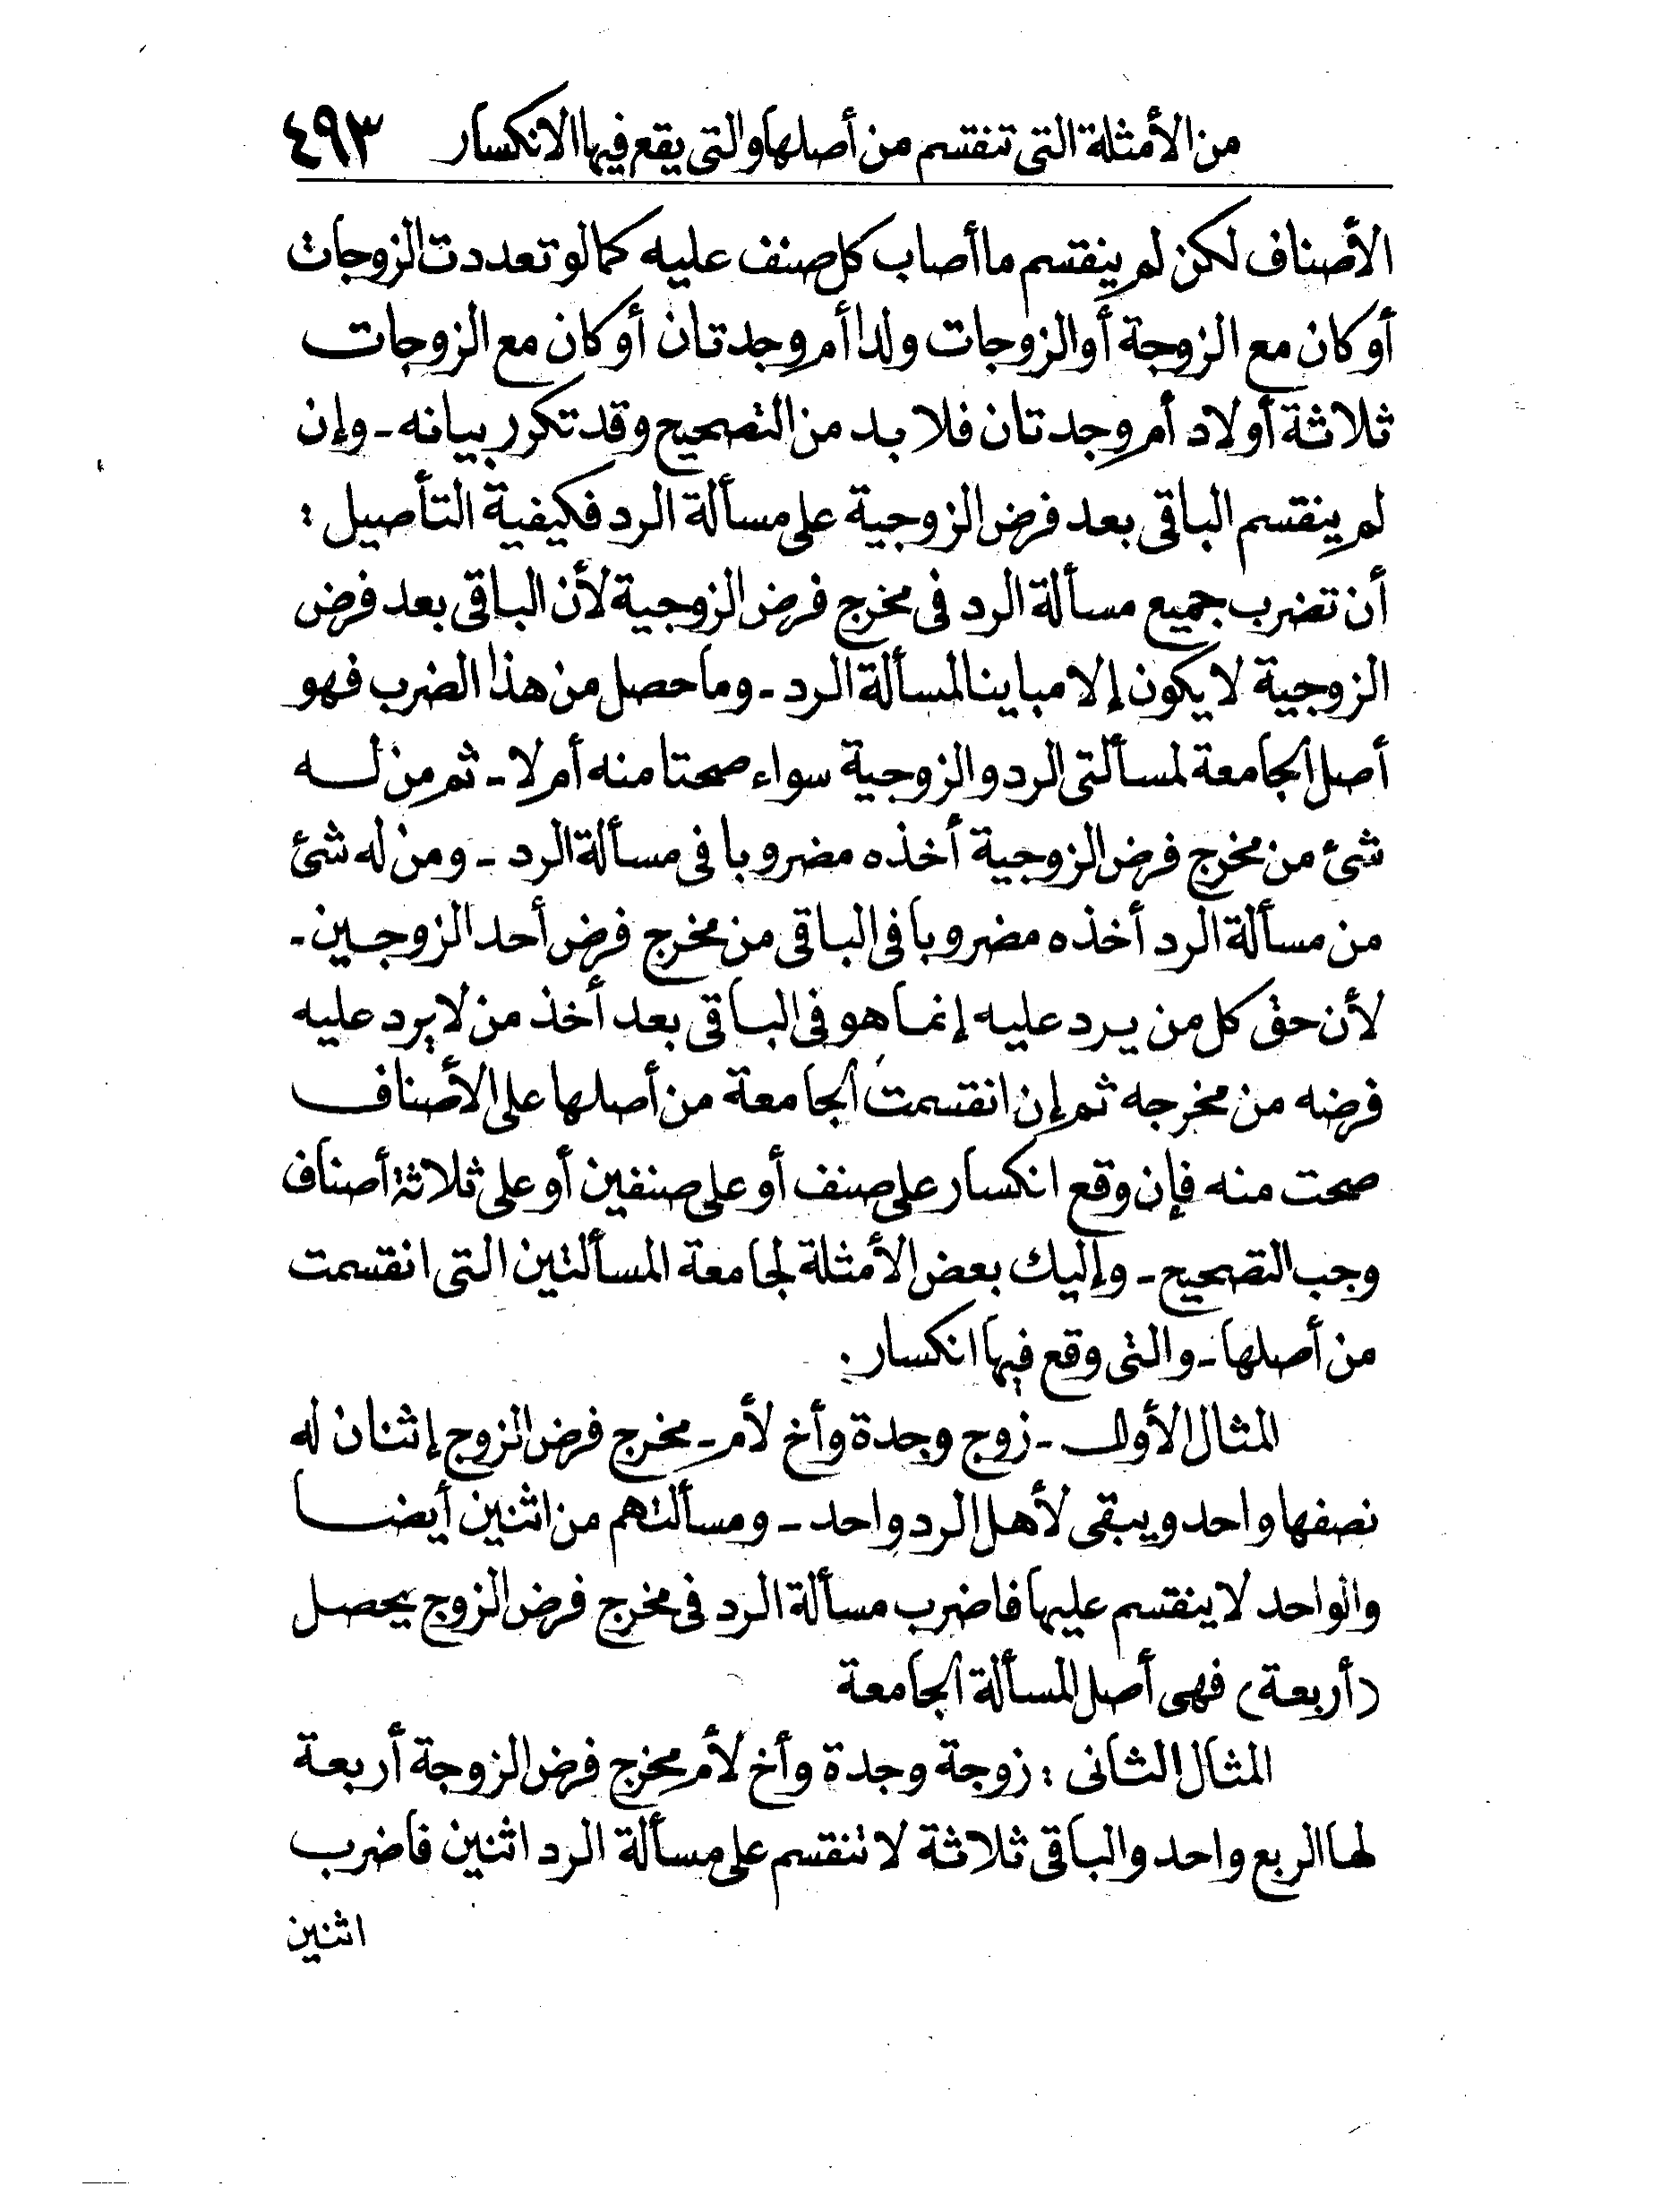 من الأمثلة التى تنقسم من أصلها والتى يقع فيها الانكسار ٤٩٣
الأصناف لكن لم ينقسم ما أصاب كل صنف عليه كما لو تعددت الزوجات
أو كان مع الزوجة أو الزوجات ولدا أم وجدتان أو كان مع الزوجات
ثلاثة أولاد أم وجدتان فلا بد من التصحيح وقد تكرر بيانه - وإن
لم ينقسم الباقى بعد فرض الزوجية على مسألة الرد فكيفية التأصيل :
أن تضرب جميع مسألة الرد فى مخرج فرض الزوجية لأن الباقى بعد فرض
الزوجية لا يكون إلا مباينا لمسألة الرد - وما حصل من هذا الضرب فهو
أصل الجامعة لمسألتى الرد والزوجية سواء صحتا منه أم لا - ثم من له
شئ من مخرج فرض الزوجية أخذه مضروبا فى مسألة الرد - ومن له شئ
من مسألة الرد أخذه مضروبا فى الباقى من مخرج فرض أحد الزوجين -
لأن حق كل من يرد عليه إنما هو فى الباقى بعد أخذ من لا يرد عليه
فرضه من مخرجه ثم إن انقسمت الجامعة من أصلها على الأصناف
صحت منه فإن وقع انكسار على صنف أو على صنفين أو على ثلاثة أصناف
وجب التصحيح - وإليك بعض الأمثلة لجامعة المسألتين التى انقسمت
من أصلها - والتى وقع فيها انكسار .
المثال الأول - زوج وجدة وأخ لأم - مخرج فرض الزوج إثنان له
نصفها واحد ويبقى لأهل الرد واحد - ومسألتهم من اثنين أيضا
والواحد لا ينقسم عليها فاضرب مسألة الرد فى مخرج فرض الزوج يحصل
(أربعة) فهى أصل المسألة الجامعة
المثال الثانى : زوجة وجدة وأخ لأم مخرج فرض الزوجة أربعة
لها الربع واحد والباقى ثلاثة لا تنقسم على مسألة الرد اثنين فاضرب
اثنين